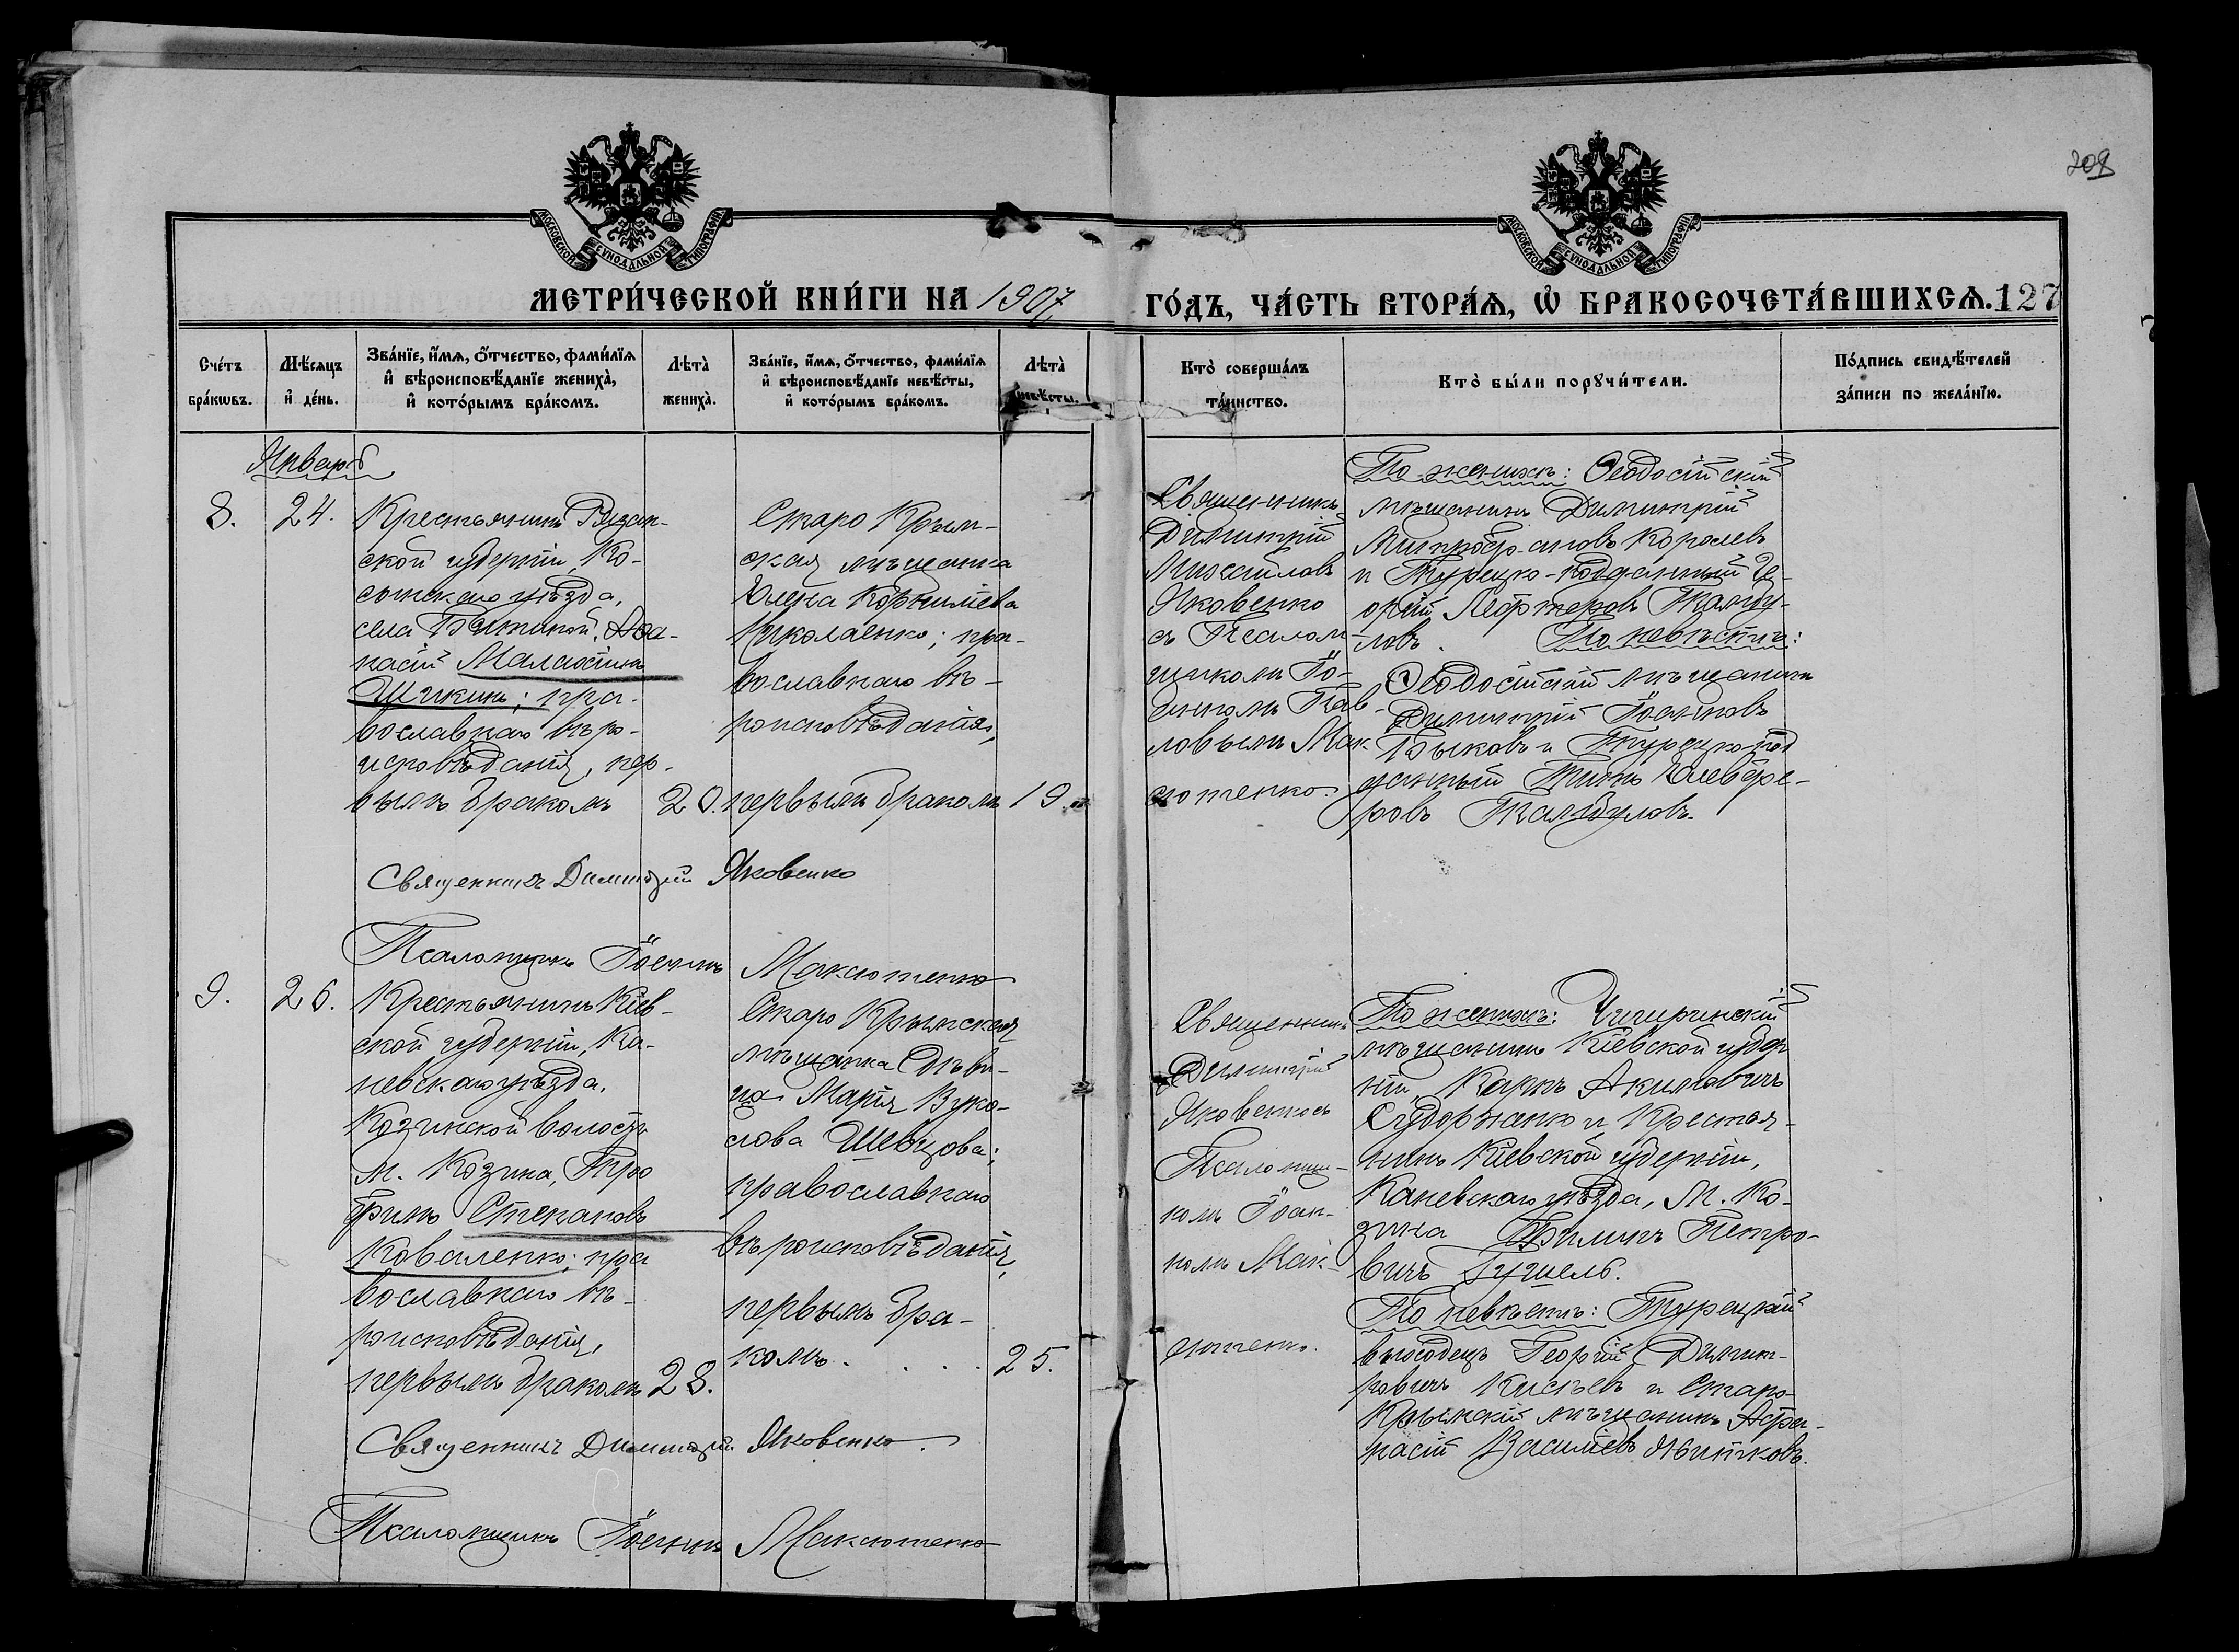 209
МОСКОВСКОЙ СѴНОДАЛЬНОЙ ТИПОГРАФІИ
МОСКОВСКОЙ СѴНОДАЛЬНОЙ ТИПОГРАФІИ
МЕТРИ́ЧЕСКОЙ КНИ́ГИ НА 1907 ГО́ДЪ, ЧА́СТЬ ВТОРА́Ѧ, Ѡ҆ БРАКОСОЧЕТА́ВШИХСѦ. 127
Сче́тъ бра́кωвъ.
Мѣ́сяцъ и҆ де́нь.
Зва́нїе, и҆́мѧ, ѻ҆́тчество, фами́лїѧ
и҆ вѣроисповѣ́данїе жениха̀,
и҆ кото́рымъ бра́комъ.
Лѣта̀ жениха̀.
Зва́нїе, и҆́мѧ, ѻ҆́тчество, фами́лїѧ
и҆ вѣроисповѣ́данїе невѣ́сты,
и҆ кото́рымъ бра́комъ.
Лѣта̀ невѣ́сты.
Кто̀ соверша́лъ
та́инство.
Кто̀ бы́ли порꙋчи́тели.
По́дпись свидѣ́телей
за́писи по жела́нїю.
Январь
8.
24.
Крестьянинъ Рязан-
ской губерніи, Ко-
сьмскаго уѣзда,
села
насій Малахіинъ
Шикинъ; пра-
вославнаго вѣро-
исповѣданія, пер-
вымъ бракомъ
20.
Старо Крым-
ская мѣщанка
Елена Корниліева
Николаенко; пра-
вославнаго вѣ-
роисповѣданія,
первымъ бракомъ
19.
Священникъ
Димитрій
Михаиловъ
Яковенко
съ Псалом-
щикомъ Іо-
анномъ Пав-
ловымъ Мак
сютенко.
По женихѣ: Ѳеодосійскій
мѣщанинъ Димитрій
Митрофановъ Королевъ
и Турецко-подданный Ге-
оргій
ловъ. По невѣстѣ:
Ѳеодосійскій мѣщанинъ
Димитрій Іоанновъ
Быковъ и Турецко-под
данный
ровъ
Священникъ Димитрій Яковенко
Псаломщикъ Іоаннъ Максютенко
9.
26.
Крестьянинъ Кіев-
ской губерніи, Ка-
невскаго уѣзда,
Козинской волости
М. Козина, Тро
фимъ Степановъ
Коваленко; пра
вославнаго вѣ-
роисповѣданія,
первымъ бракомъ
28.
Старо Крымская
мѣщанка Дѣви-
ца Марія Вуко-
лова Шевцова;
православнаго
вѣроисповѣданія,
первымъ бра-
комъ. . . . .
25.
Священникъ
Димитрій
Яковенко съ
Псаломщи-
комъ Іоан-
номъ Мак-
сютенко.
По женихѣ: Чигиринскій
мѣщанинъ Кіевской губер
ніи, Карпъ Акимовичъ
Судоржанко и Крестья-
нинъ Кіевской губерніи,
Каневскаго уѣзда, М. Ко-
зина Филипъ Петро-
вичъ Гушель.
По невѣстѣ: Турецкій
выходецъ Георгій Димит-
ровичъ Кисѣевъ и Старо
Крымскій мѣщанинъ Афа-
насій Василіевъ
Священникъ Димитрій Яковенко.
Псаломщикъ Іоаннъ Максютенко